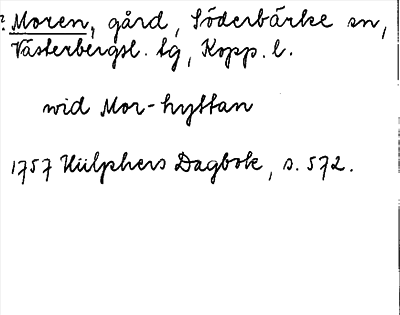 ? Moren, gård, Söderbärke sn,
Västerbergsl. tg, Kopp. l.
wid Mor-hyttan
1757 Hülphers Dagbok, s. 572.